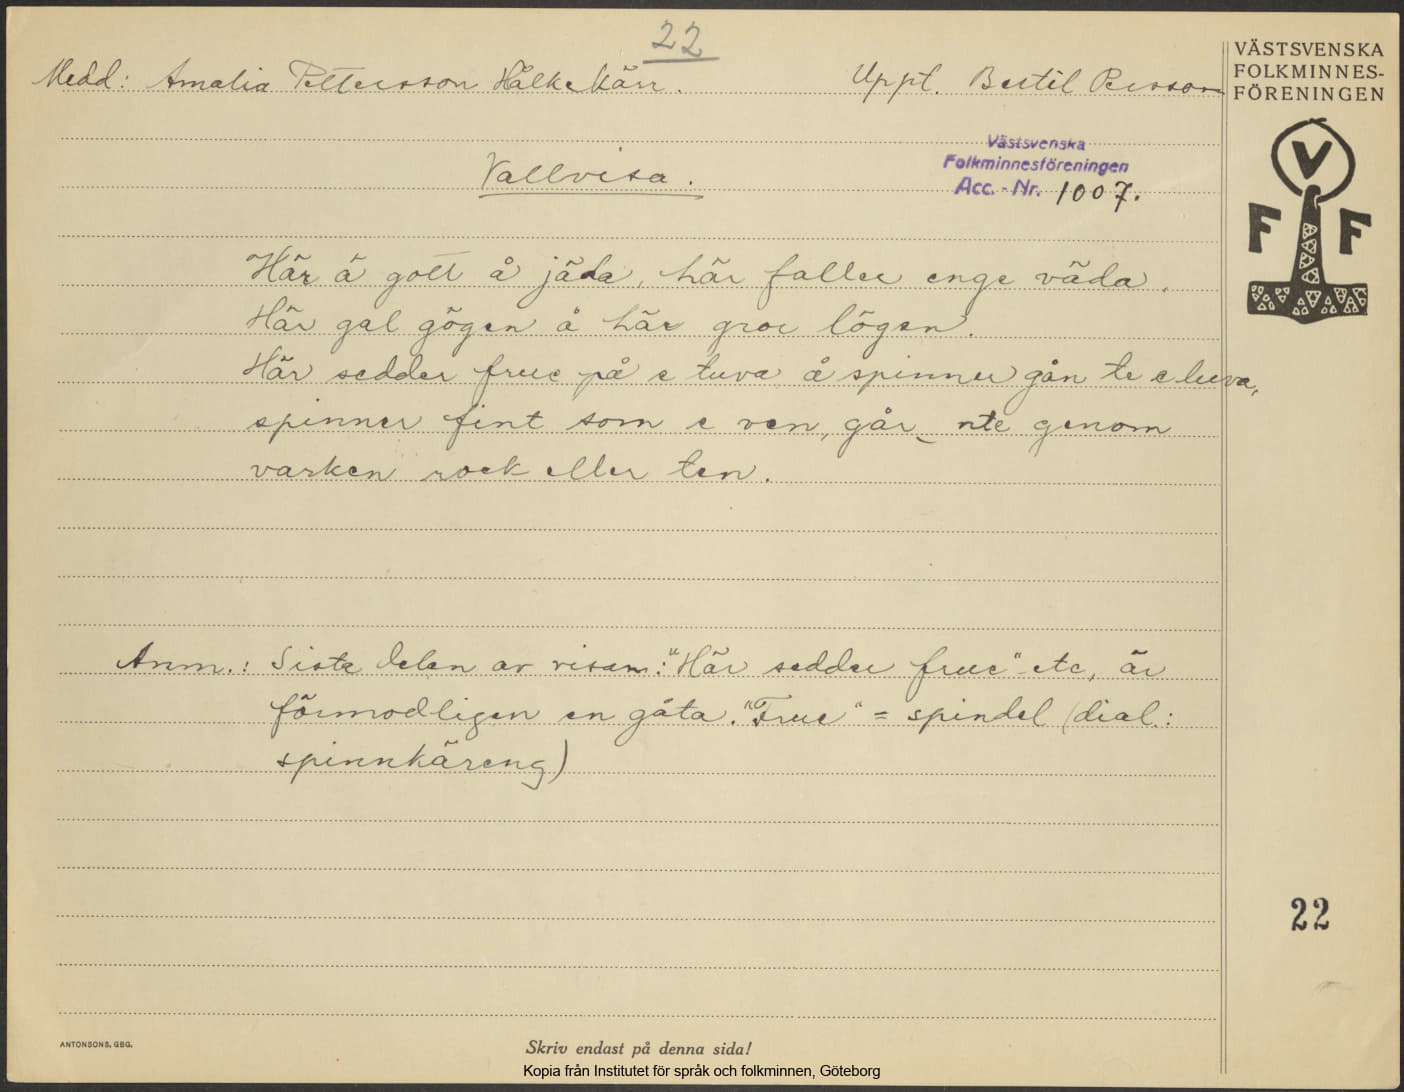 22
Medd: Amalia Pettersson Hälkekärr.
Uppt. Bertil Persson
VÄSTSVENSKA
FOLKMINNES-
FÖRENINGEN
Västsvenska
Folkminnesföreningen
Acc.-Nr. 1007.
Vallvisa.
V
F F
Här ä gott å jäda, här faller enge väda.
Här gal gögen å här gror lögen.
Här sedder frue på e tuva å spinner gån te e luva,
spinner fint som e ven, går nte genom
varken rock eller ten.
Anm.: Sista delen av visan: "Här sedder frue" etc, är
förmodligen en gåta. "Frue" = spindel (dial.:
spinnkäreng)
22
ANTONSONS, GBG.
Skriv endast på denna sida!
Kopia från Institutet för språk och folkminnen, Göteborg